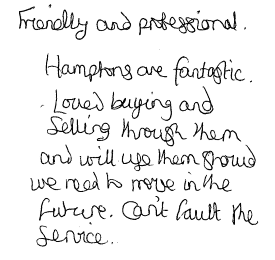 Friendly and professional.
Hamptons are fantastic.
Loved buying and
Selling through them
and will use them should
we need to move in the
future. Can't fault the
Service.